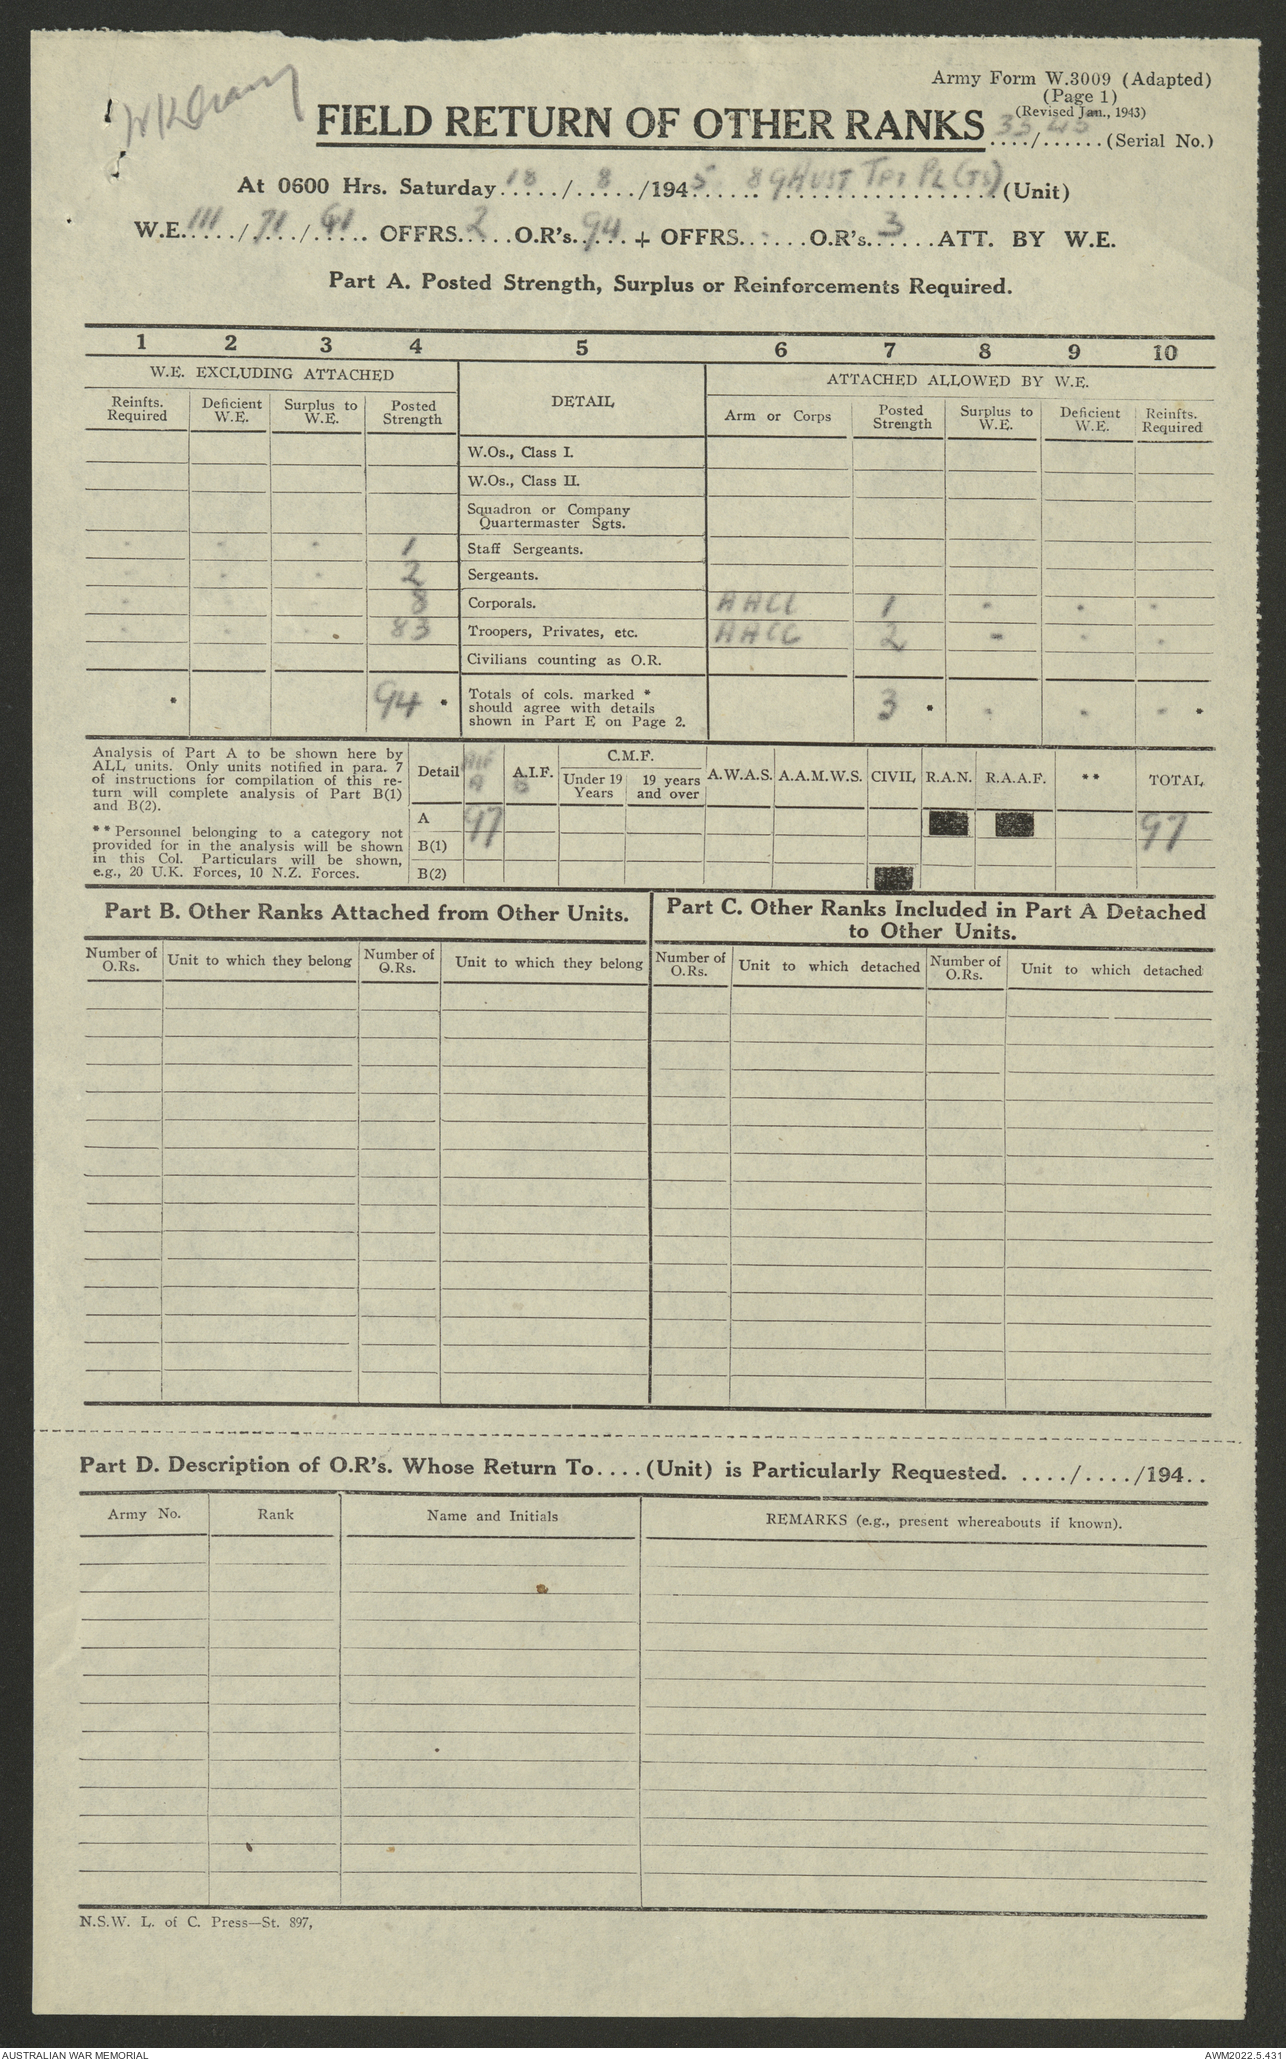 Army Form W.3009 (Adapted)
(Page 1)
(Revised Jan., 1943)
FIELD RETURN OF OTHER RANKS 35/45 (Serial No.)
At 0600 Hrs. Saturday 18/8/1945 89 Aust Tpt Pl (TS) (Unit)
W.E. 111/71/G1 OFFRS. 2 O.R's. 94 + OFFRS. - O.R's. 3 ATT. BY W.E.
Part A. Posted Strength, Surplus or Reinforcements Required.
1 2 3 4 5 6 7 8 9 10
W.E. EXCLUDING ATTACHED DETAIL ATTACHED ALLOWED BY W.E.
Reinfts. Required Deficient W.E. Surplus to W.E. Posted Strength Arm or Corps Posted Strength Surplus to W.E. Deficient W.E. Reinfts. Required
W.Os., Class I.
W.Os., Class II.
Squadron or Company
Quartermaster Sgts.
- - - 1 Staff Sergeants.
- - - 2 Sergeants.
- - - 8 Corporals. AACC 1 - - -
- - - 83 Troopers, Privates, etc. AACC 2 - - -
Civilians counting as O.R.
* 94 * Totals of cols. marked * 3 * - - - *
should agree with details
shown in Part E on Page 2.
Analysis of Part A to be shown here by
ALL units. Only units notified in para. 7
of instructions for compilation of this re-
turn will complete analysis of Part B(1)
and B(2).
**Personnel belonging to a category not
provided for in the analysis will be shown
in this Col. Particulars will be shown,
e.g., 20 U.K. Forces, 10 N.Z. Forces.
Detail AIF A A.I.F. B C.M.F. Under 19 Years 19 years and over A.W.A.S. A.A.M.W.S. CIVIL R.A.N. R.A.A.F. ** TOTAL
A 97 97
B(1)
B(2)
Part B. Other Ranks Attached from Other Units.
Part C. Other Ranks Included in Part A Detached
to Other Units.
Number of O.Rs. Unit to which they belong Number of O.Rs. Unit to which they belong Number of O.Rs. Unit to which detached Number of O.Rs. Unit to which detached
Part D. Description of O.R's. Whose Return To....(Unit) is Particularly Requested. ..../..../194..
Army No. Rank Name and Initials REMARKS (e.g., present whereabouts if known).
N.S.W. L. of C. Press—St. 897,
AUSTRALIAN WAR MEMORIAL AWM2022.5.431